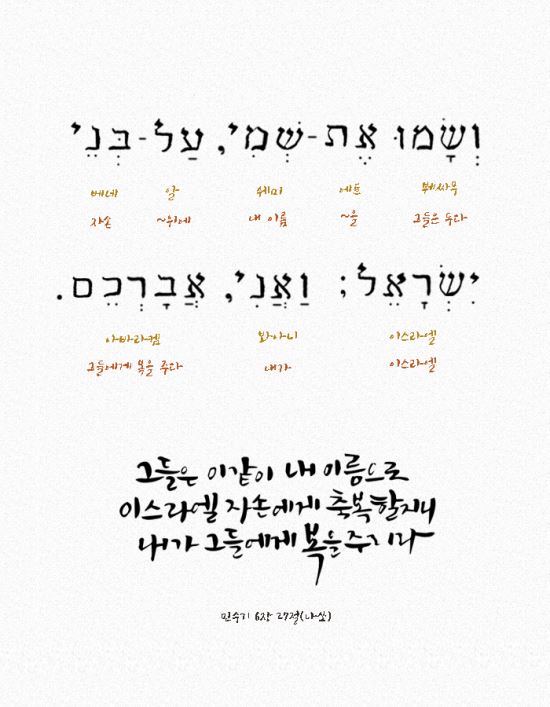 וְשָׂמוּ אֶת-שְׁמִי, עַל-בְּנֵי
베네 알 쉐미 에트 붸싸무
자손 ~위에 내 이름 ~을 그들은 두다
יִשְׂרָאֵל; וַאֲנִי, אֲבָרְכֵם.
아바라켐 봐아니 이스라엘
그들에게 복을 주다 내가 이스라엘
그들은 이같이 내 이름으로
이스라엘 자손에게 축복할지니
내가 그들에게 복을 주리라
민수기 6장 27절(나쏘)